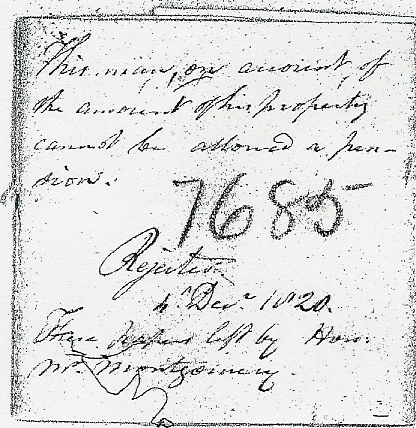 This man, on account of
the amount of his property
cannot be allowed a pen-
sion.
7685
Rejected
4th Decr 1820.
These papers left by Hon:
Mr. Montgomery.